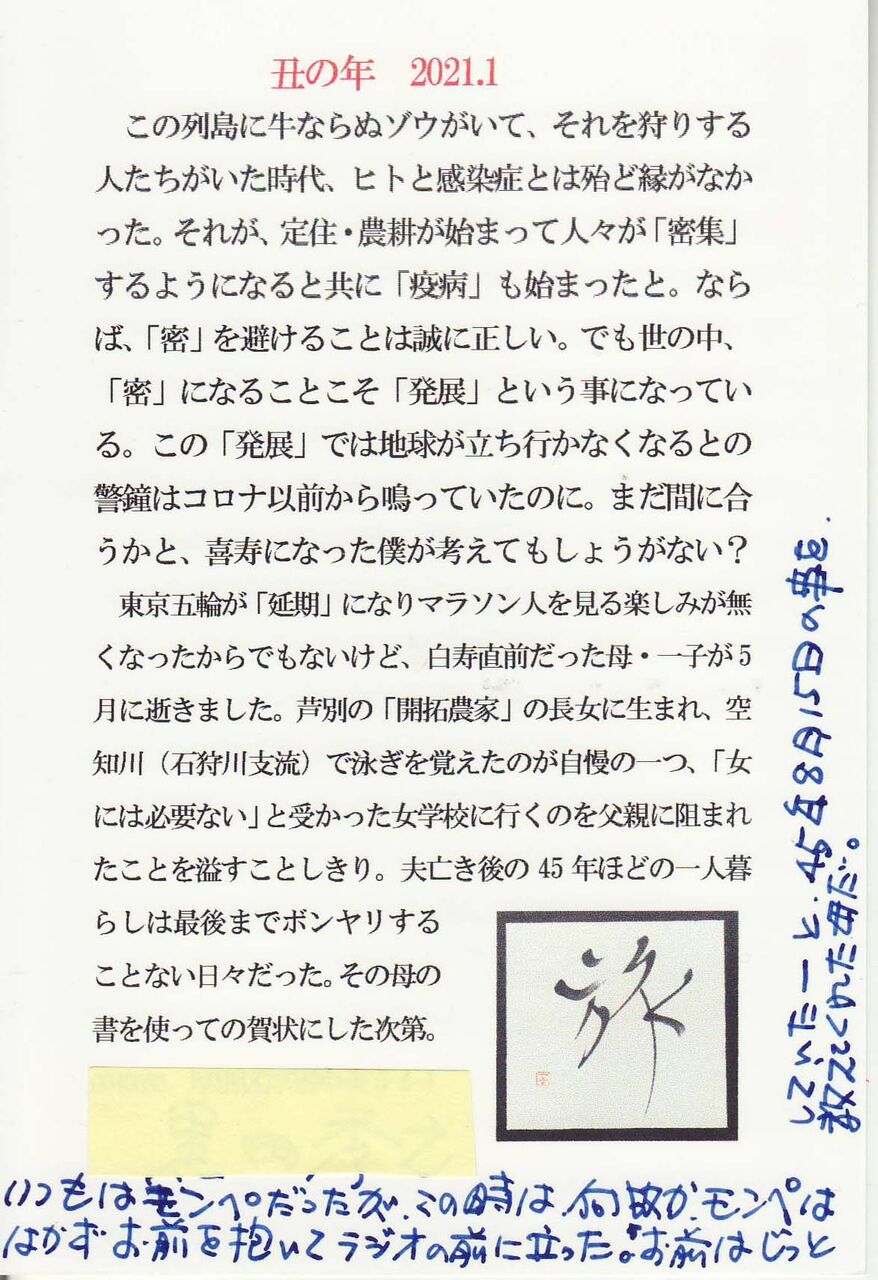 丑の年　2021.1
この列島に牛ならぬゾウがいて、それを狩りする
人たちがいた時代、ヒトと感染症とは殆ど縁がなか
った。それが、定住・農耕が始まって人々が「密集」
するようになると共に「疫病」も始まったと。なら
ば、「密」を避けることは誠に正しい。でも世の中、
「密」になることこそ「発展」という事になってい
る。この「発展」では地球が立ち行かなくなるとの
警鐘はコロナ以前から鳴っていたのに。まだ間に合
うかと、喜寿になった僕が考えてもしょうがない？
東京五輪が「延期」になりマラソン人を見る楽しみが無
くなったからでもないけど、白寿直前だった母・一子が5
月に逝きました。芦別の「開拓農家」の長女に生まれ、空
知川（石狩川支流）で泳ぎを覚えたのが自慢の一つ、「女
には必要ない」と受かった女学校に行くのを父親に阻まれ
たことを溢すことしきり。夫亡き後の 45 年ほどの一人暮
らしは最後までボンヤリする
ことない日々だった。その母の
書を使っての賀状にした次第。
旅
いつもはモンペだったが、この時は、何故か、モンペは
はかずお前を抱いてラジオの前に立った。お前はじっと
していたーと、45年8月15日の事を
教えてくれた母だ。